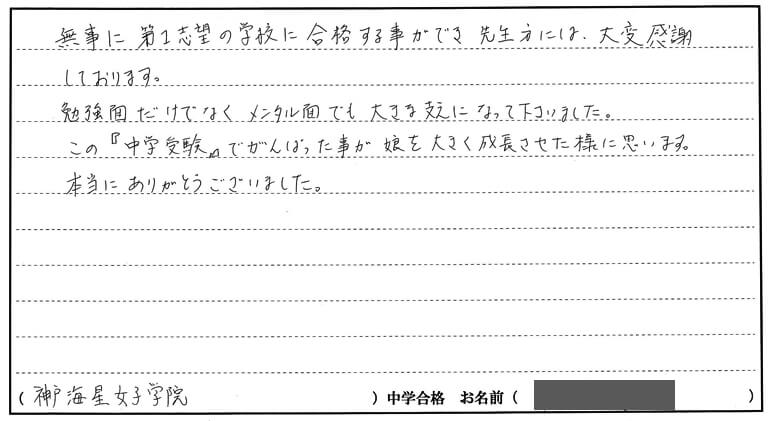 無事に 第1志望の学校に 合格する事ができ 先生方には、大変感謝
しております。
勉強面だけでなく メンタル面でも 大きな支えになって下さいました。
この『中学受験』でがんばった事が 娘を大きく成長させた様に思います。
本当に ありがとうございました。
( 神戸海星女子学院 ) 中学合格 お名前 ( )